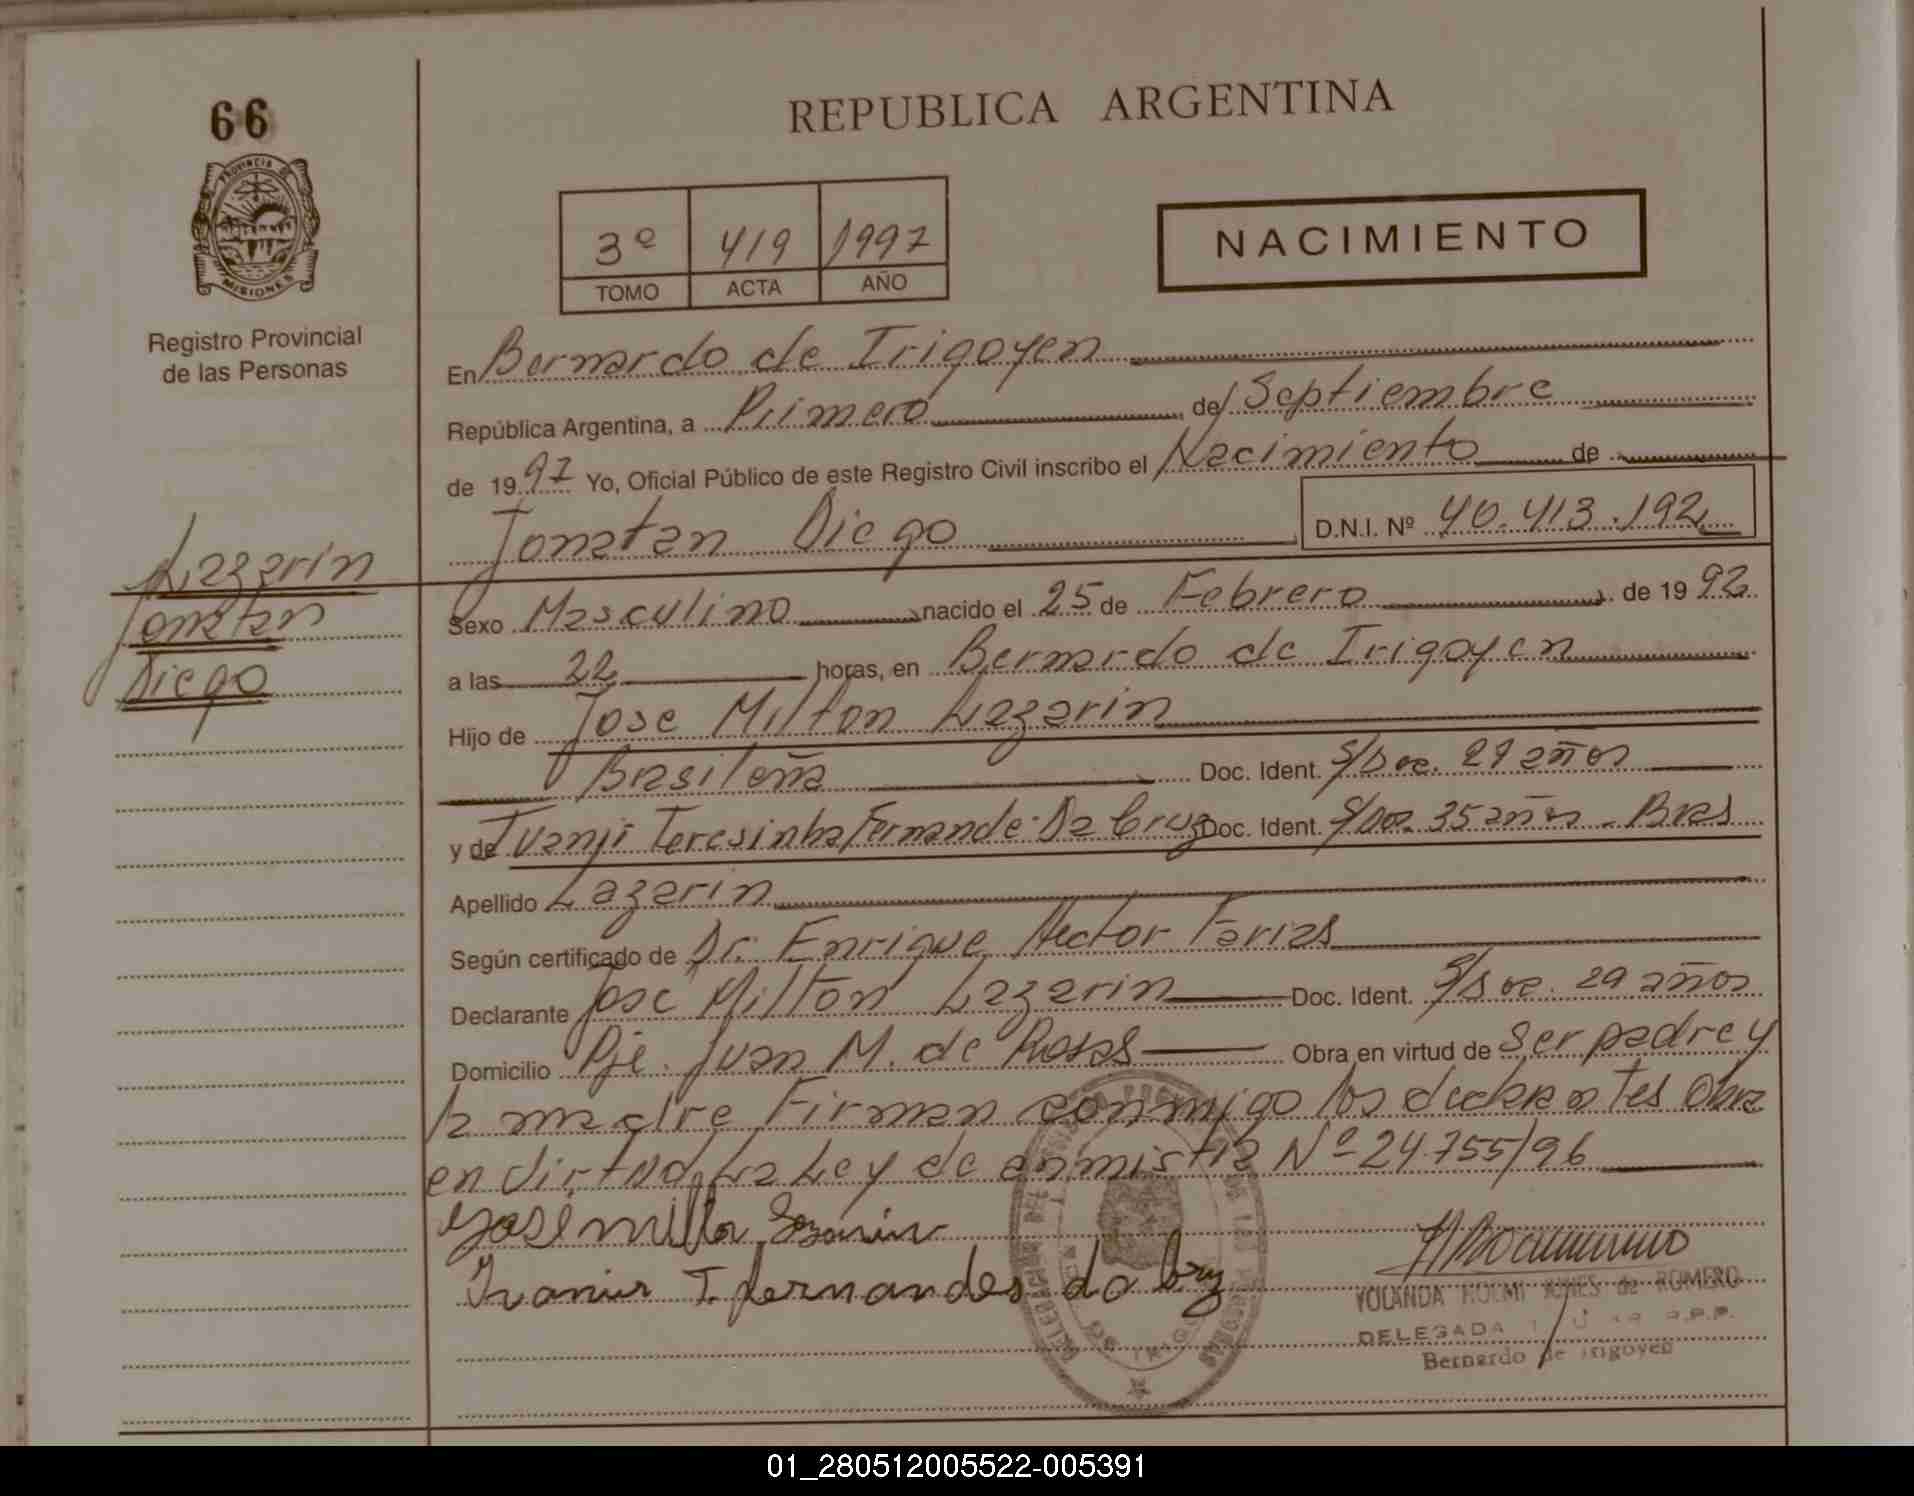 66
REPUBLICA ARGENTINA
PROVINCIA DE
MISIONES
3º 419 1997
TOMO ACTA AÑO
NACIMIENTO
Registro Provincial
de las Personas
En Bernardo de Irigoyen
República Argentina, a Primero de Septiembre
de 1997 Yo, Oficial Público de este Registro Civil inscribo el Nacimiento de
Jonatan Diego D.N.I. Nº 40.413.192
Lazarin
Jonatan
Diego
Sexo Masculino nacido el 25 de Febrero de 1992
a las 22 horas, en Bernardo de Irigoyen
Hijo de Jose Milton Lazarin
Brasileña Doc. Ident. S/Doc. 29 años
y de Ivanir Teresinha Fernande Da Cruz Doc. Ident. S/Doc. 35 años - Bras
Apellido Lazarin
Según certificado de Dr. Enrique Hector Farias
Declarante Jose Milton Lazarin Doc. Ident. S/Doc. 29 años
Domicilio Pje. Juan M. de Rosas Obra en virtud de ser padre y
la madre Firman conmigo los declarantes Obra
en virtud La Ley de anmistia Nº 24.755/96
José Milton Lazarin
Ivanir T. fernandes da Cruz
YOLANDA NOEMI de ROMERO
DELEGADA
Bernardo de Irigoyen
01_280512005522-005391